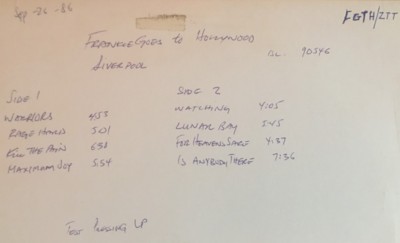 Sep-26-86
FGTH/ZTT
Frankie Goes to Hollywood
Liverpool
AL. 90546
Side 1
Warriors 4:53
Rage Hard 5:01
Kill The Pain
Maximum Joy 5:54
Side 2
Watching 4:05
Lunar Bay 5:45
For Heavens Sake 4:37
Is Anybody There 7:36
Test Pressing LP